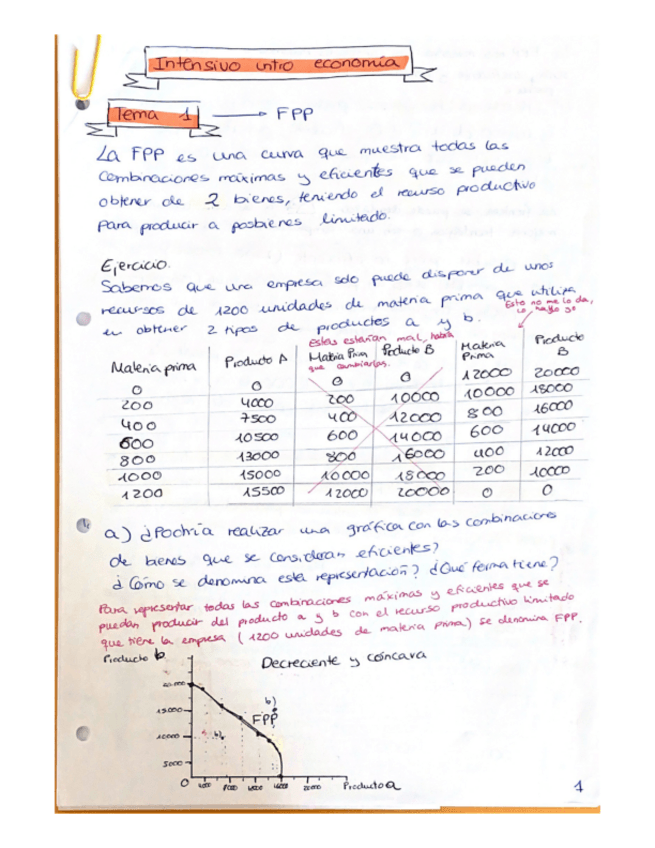 Intensivo intro economía
Tema 1 → FPP
La FPP es una curva que muestra todas las
combinaciones máximas y eficientes que se pueden
obtener de 2 bienes, teniendo el recurso productivo
para producir a posbienes limitado.
Ejercicio.
Sabemos que una empresa solo puede disponer de unos
recursos de 1200 unidades de materia prima que utiliza
en obtener 2 tipos de productos a y b.
Esto no me lo da,
lo hallo yo
estas estarían mal, habría
que cambiarlas.
Materia prima Producto A Materia Prim Producto B Materia Prima Producto B
0 0 0 0 12000 20000
200 4000 200 10000 10000 18000
400 7500 400 12000 800 16000
600 10500 600 14000 600 14000
800 13000 800 16000 400 12000
1000 15000 10000 18000 200 10000
1200 15500 12000 20000 0 0
a) ¿Podría realizar una gráfica con las combinaciones
de bienes que se consideran eficientes?
¿Cómo se denomina esta representación? ¿Qué forma tiene?
Para representar todas las combinaciones máximas y eficientes que se
puedan producir del producto a y b con el recurso productivo limitado
que tiene la empresa (1200 unidades de materia prima) se denomina FPP.
Producto b
Decreciente y cóncava
20.000
15.000
b)
FPP
10000
b)
5000
0
Producto a
1